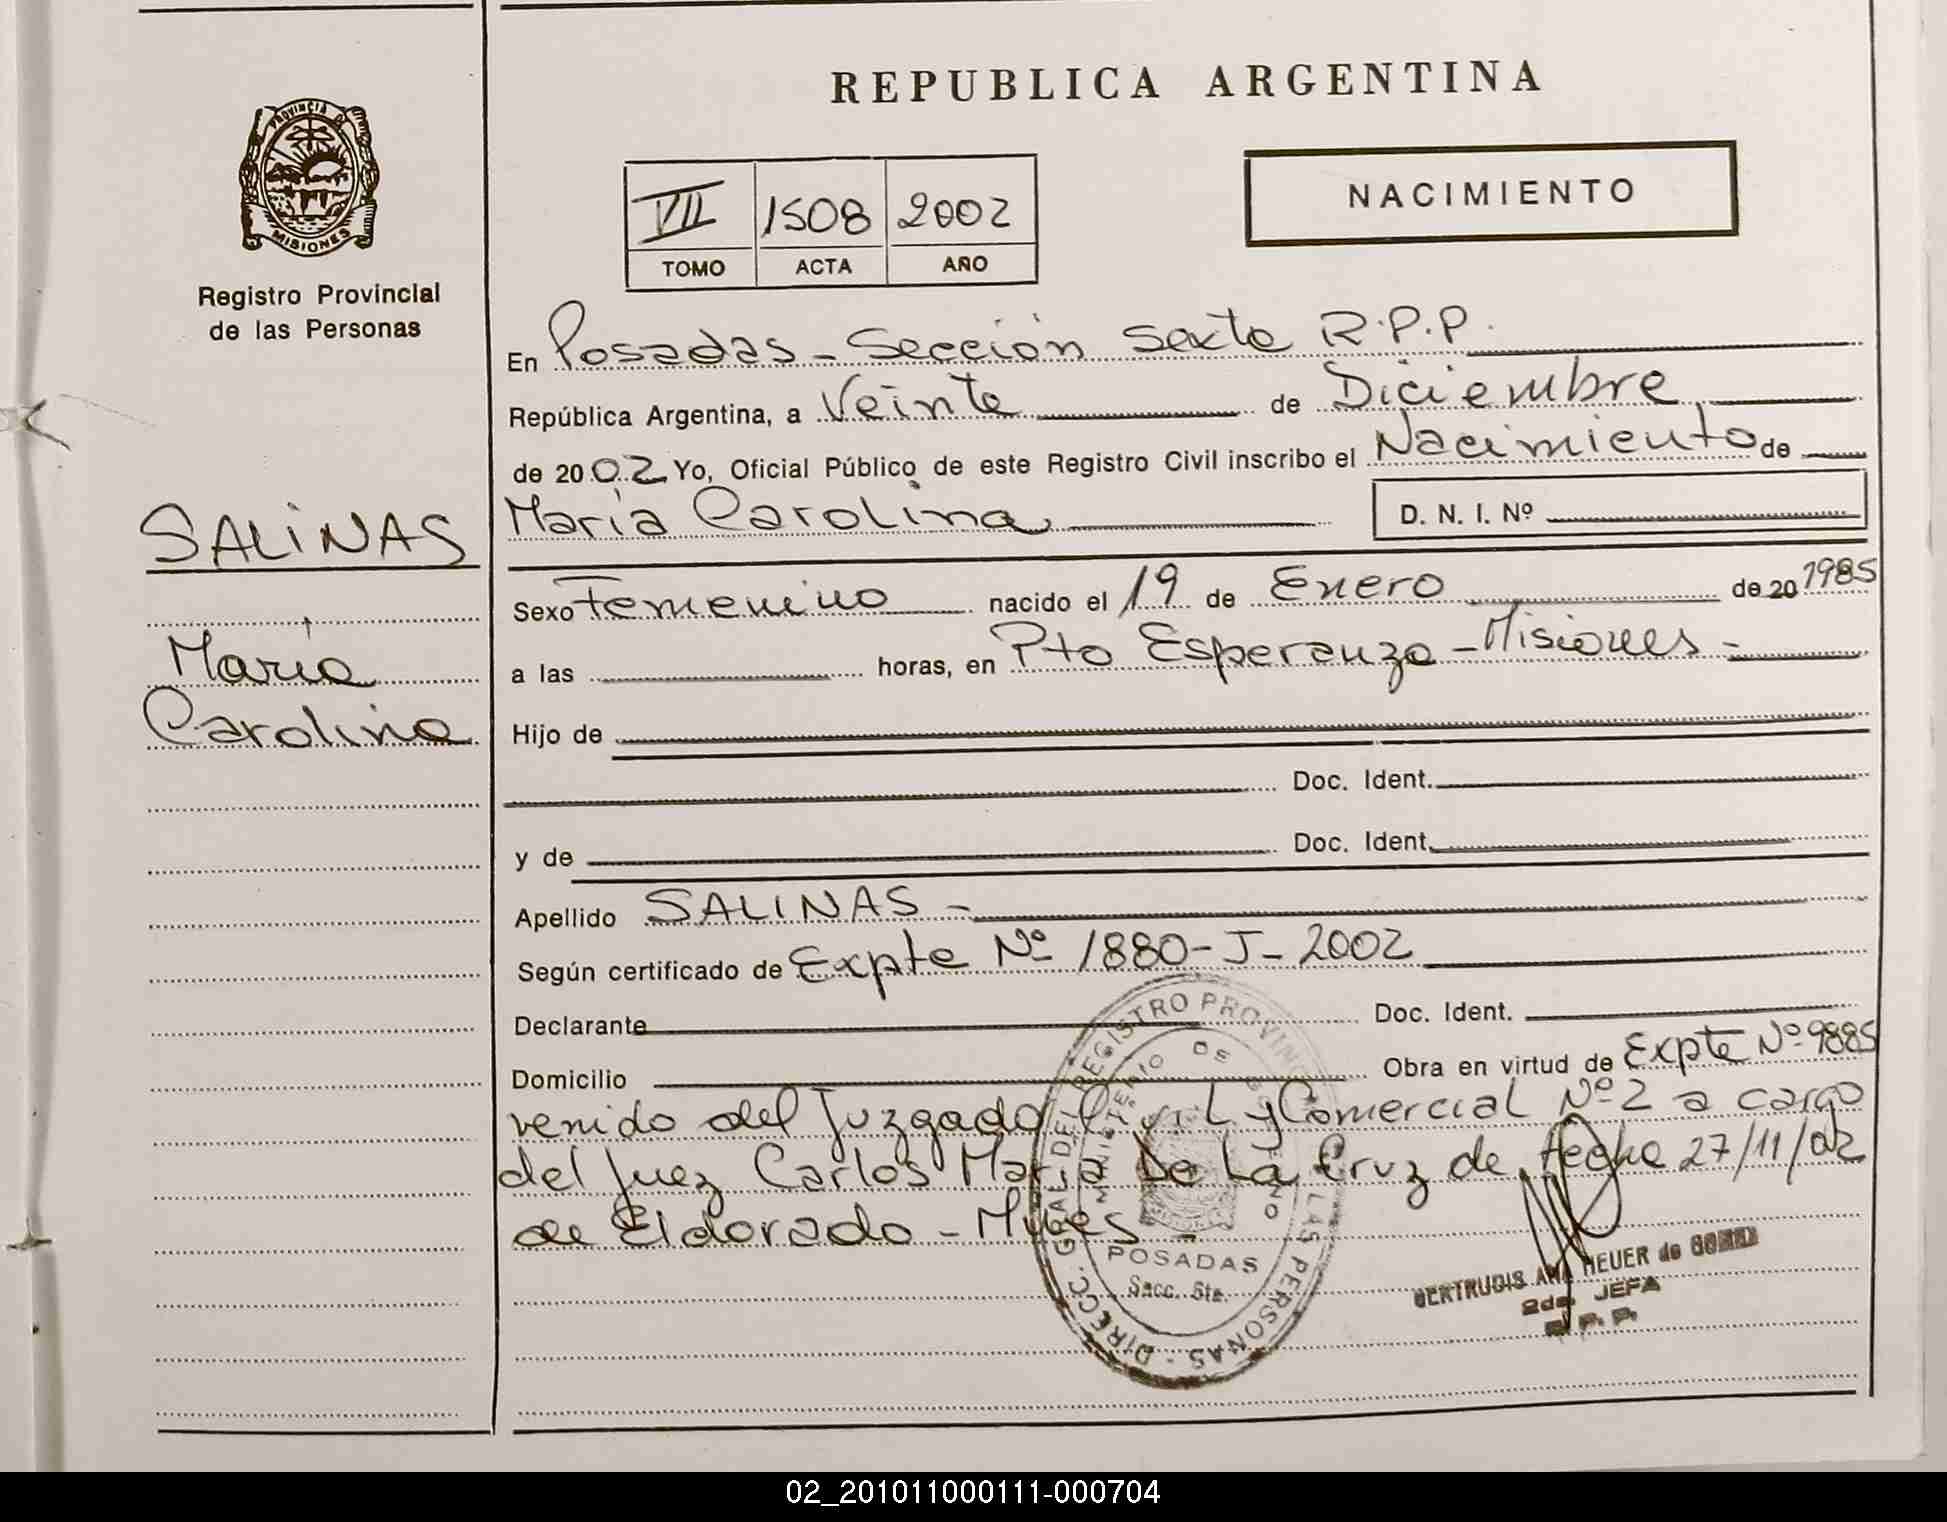 REPUBLICA ARGENTINA
PROVINCIA DE MISIONES
Registro Provincial
de las Personas
VII 1508 2002
TOMO ACTA AÑO
NACIMIENTO
En Posadas - Sección Sexta R.P.P.
República Argentina, a Veinte de Diciembre
de 2002 Yo, Oficial Público de este Registro Civil inscribo el Nacimiento de
María Carolina D. N. I. Nº
SALINAS
María
Carolina
Sexo Femenino nacido el 19 de Enero de 20 1985
a las horas, en Pto Esperanza - Misiones -
Hijo de
Doc. Ident.
y de Doc. Ident.
Apellido SALINAS -
Según certificado de Expte Nº 1880-J-2002
Declarante Doc. Ident.
Domicilio Obra en virtud de Expte Nº 9885
venido del Juzgado Civil y Comercial Nº 2 a cargo
del Juez Carlos María De La Cruz de fecha 27/11/02
de Eldorado - Mnes -
DIRECC. GRAL. DEL REGISTRO PROVINC LAS PERSONAS
MINISTERIO DE GOBIERNO
POSADAS
Secc. 6ta.
GERTRUDIS ANA HEUER de
2da. JEFA
R. P. P.
02_201011000111-000704